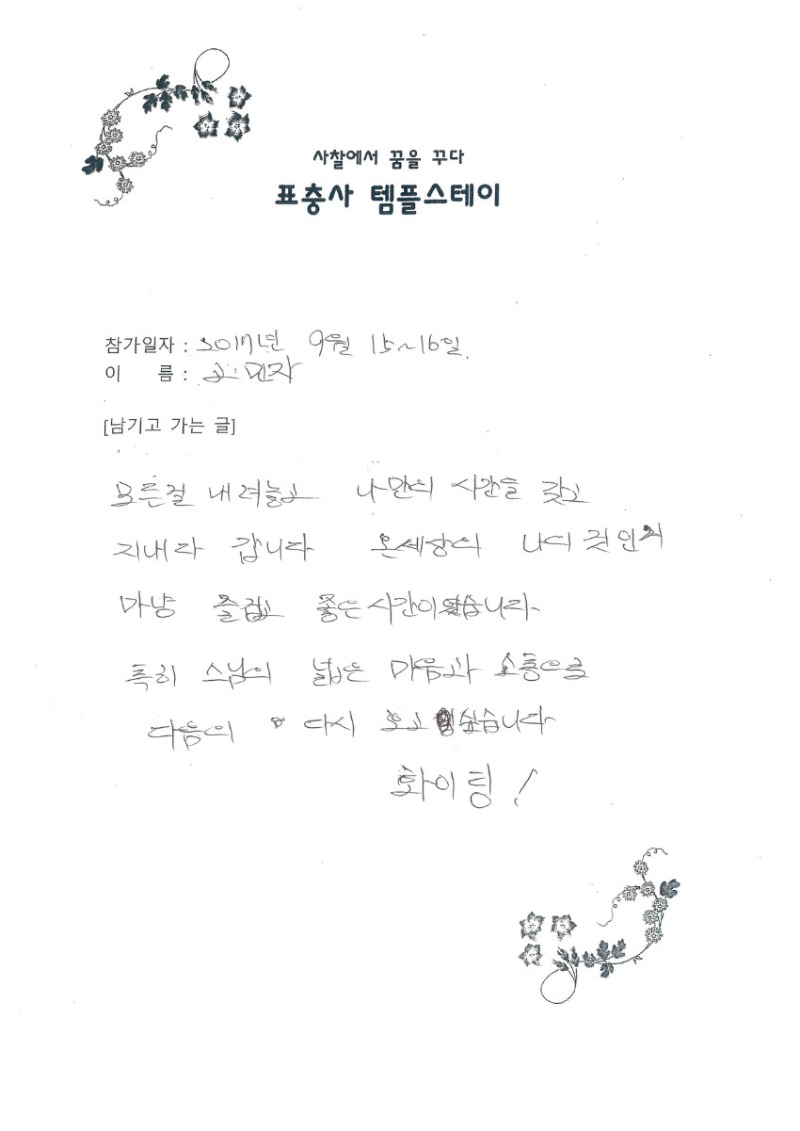 사찰에서 꿈을 꾸다
표충사 템플스테이
참가일자 : 2017년 9월 15~16일.
이 름 : 고민자
[남기고 가는 글]
모른걸 내려놓고 나만의 시간을 갖고
지내다 갑니다 온세상의 나의 것인지
마냥 즐겁고 좋은시간이였습니다
특히 스님의 넓은 마음과 소통으로
다음의 다시 오고 싶습니다
화이팅!